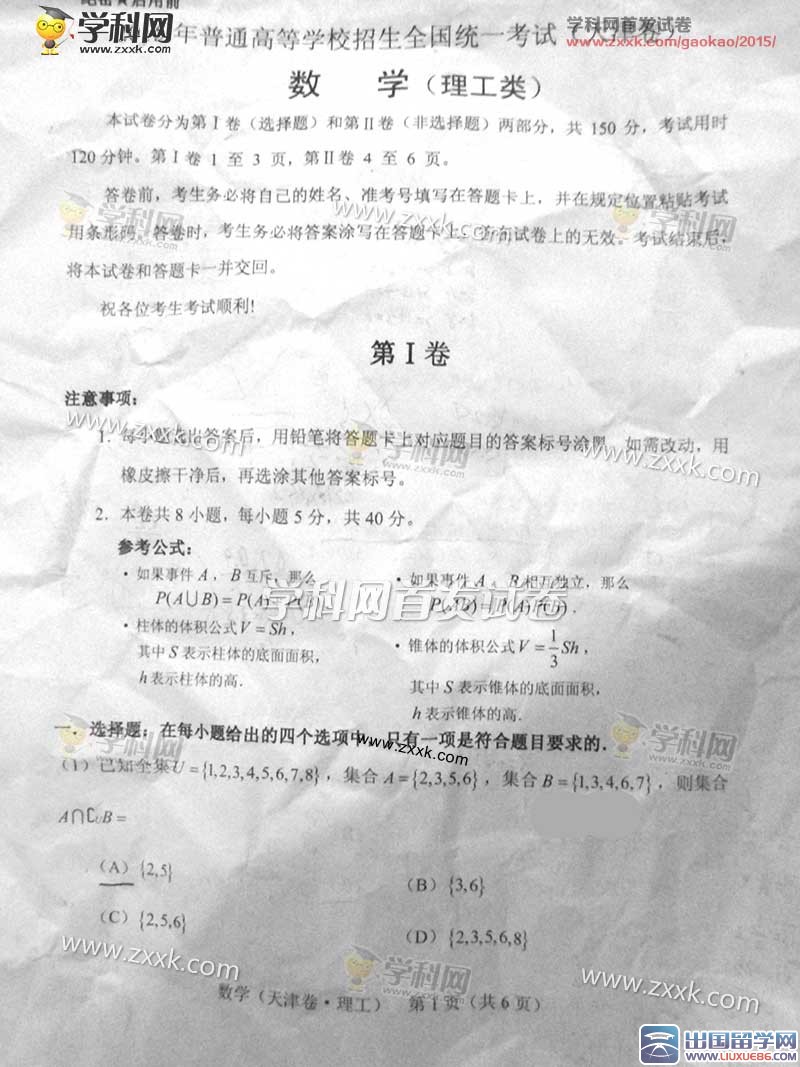 绝密★启用前
学科网首发试卷
www.zxxk.com/gaokao/2015/
学科网
www.zxxk.com
年普通高等学校招生全国统一考试（天津卷）
数 学（理工类）
本试卷分为第Ⅰ卷（选择题）和第Ⅱ卷（非选择题）两部分，共 150 分，考试用时
120 分钟。第Ⅰ卷 1 至 3 页，第Ⅱ卷 4 至 6 页。
答卷前，考生务必将自己的姓名、准考号填写在答题卡上，并在规定位置粘贴考试
用条形码。答卷时，考生务必将答案涂写在答题卡上，答在试卷上的无效。考试结束后，
将本试卷和答题卡一并交回。
祝各位考生考试顺利!
第Ⅰ卷
注意事项：
1. 每小题选出答案后，用铅笔将答题卡上对应题目的答案标号涂黑。如需改动，用
橡皮擦干净后，再选涂其他答案标号。
2. 本卷共 8 小题，每小题 5 分，共 40 分。
参考公式：
· 如果事件 A ，B 互斥，那么
P(A∪B) = P(A)+P(B)
· 如果事件 A 、B 相互独立，那么
P(AB) = P(A)P(B) .
学科网首发试卷
· 柱体的体积公式 V = Sh ,
其中 S 表示柱体的底面面积，
h 表示柱体的高.
· 锥体的体积公式 V = 1/3 Sh ,
其中 S 表示锥体的底面面积，
h 表示锥体的高.
一．选择题：在每小题给出的四个选项中，只有一项是符合题目要求的．
（1）已知全集 U = {1,2,3,4,5,6,7,8} ，集合 A = {2,3,5,6} ，集合 B = {1,3,4,6,7} ，则集合
A∩∁UB =
（A）{2,5}
（B）{3,6}
（C）{2,5,6}
（D）{2,3,5,6,8}
数学（天津卷·理工） 第 1 页（共 6 页）
出国留学网
www.liuxue86.com